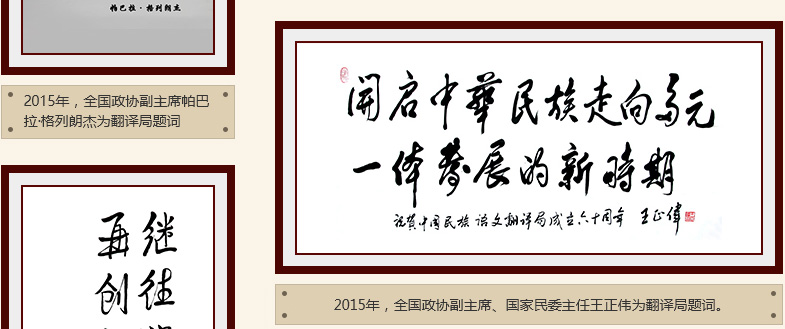 帕巴拉·格列朗杰
2015年，全国政协副主席帕巴
拉·格列朗杰为翻译局题词
继往
再创
開启中華民族走向多元
一体發展的新時期
祝賀中国民族语文翻译局成立六十周年 王正偉
2015年，全国政协副主席、国家民委主任王正伟为翻译局题词。